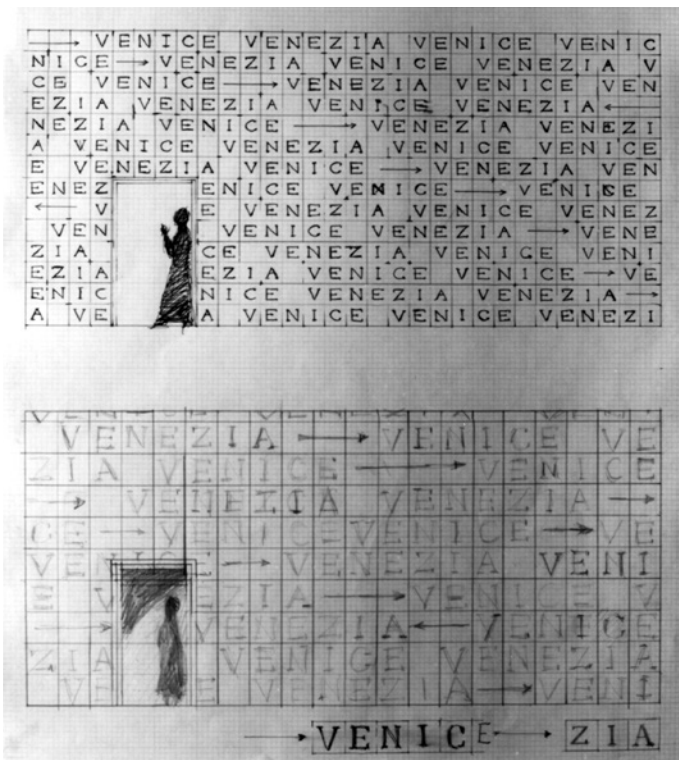 → VENICE VENEZIA VENICE VENIC
NICE → VENEZIA VENICE VENEZIA V
CE VENICE → VENEZIA VENICE VEN
EZIA VENEZIA VENICE VENEZIA ←
NEZIA VENICE → VENEZIA VENEZI
A VENICE VENEZIA VENICE VENICE
E VENEZIA VENICE → VENEZIA VEN
ENEZ ENICE VENICE → VENICE
← V E VENEZIA VENICE VENEZ
VEN VENICE VENEZIA → VENE
ZIA CE VENEZIA VENICE VENI
EZIA EZIA VENICE VENICE → VE
ENIC NICE VENEZIA VENEZIA →
A VE A VENICE VENICE VENEZI
VENEZIA → VENICE VE
ZIA VENICE → VENICE
→ VENEZIA VENEZIA →
CE → VENICE VENICE → VE
VENICE → VENEZIA VENI
E V EZIA → VENICE V
→ VENEZIA ← VENICE
ZIA VENICE VENEZIA
VE E VENEZIA → VENI
→ VENICE → ZIA